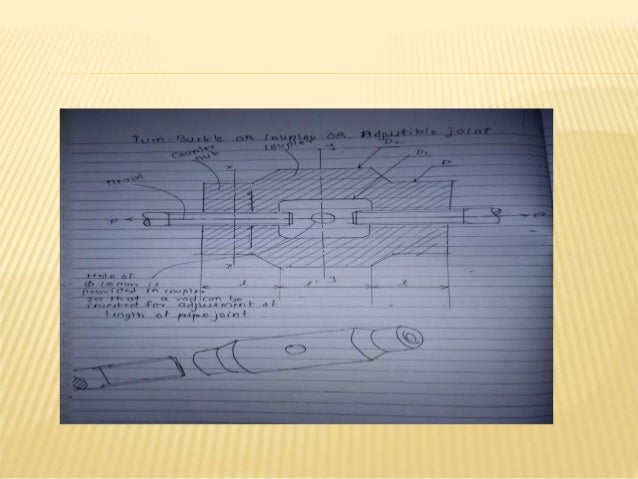 Turn-Buckle OR Coupler OR Adjustible joint
Coupler
nut
coupler
y
D2
D1
D
x
P
P
x
y
l
l'
l
Hole of
Φ 10mm is
provided in coupler
so that a rod can be
inserted for adjustment of
length of pipe joint